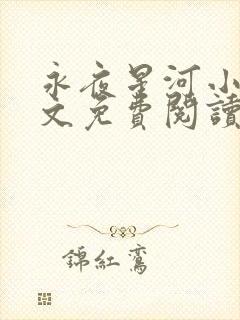 永夜星河小
文免費閱讀
錦紅鸞